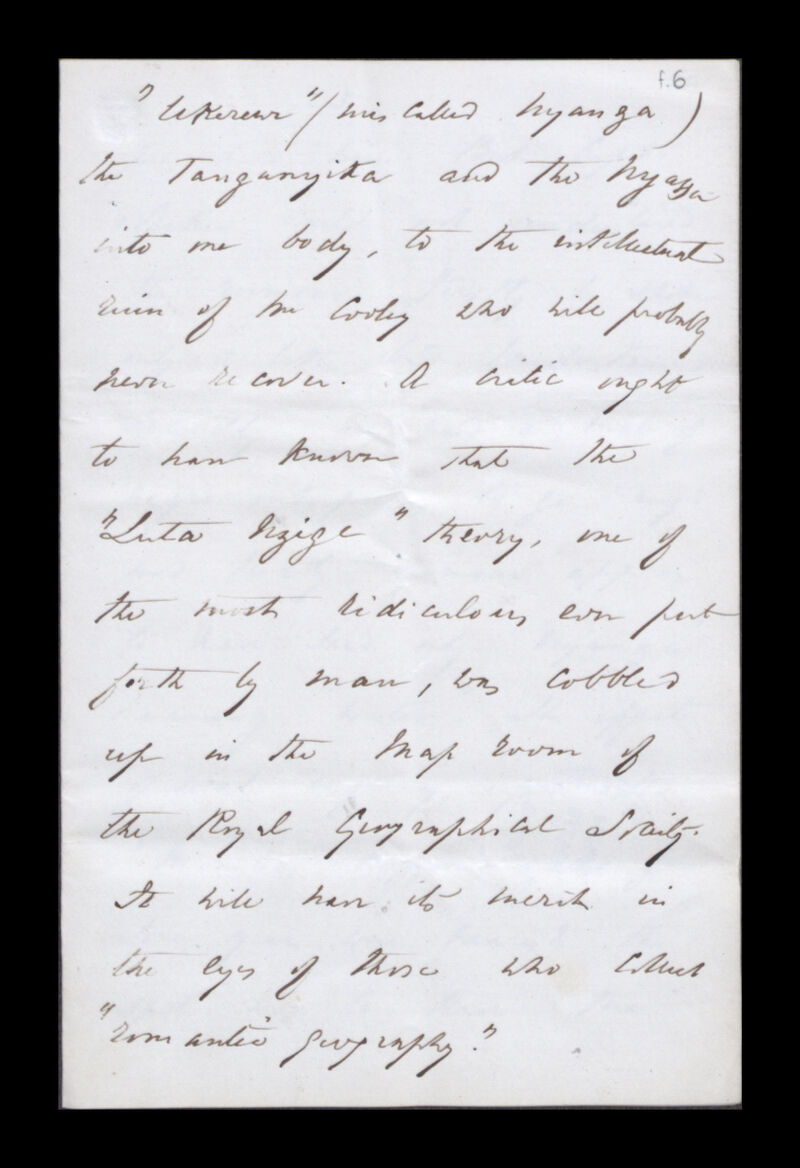 f.6
"Ukerewe" (miscalled Nyanza)
the Tanganyika and the Nyassa
into one body, to the intellectual
ruin of Mr Cooley who will probably
never recover. A critic ought
to have known that the
"Luta Nzige" theory, one of
the most ridiculous ever put
forth by man, was cobbled
up in the Map room of
the Royal Geographical Society.
It will have its merit in
the eyes of those who collect
"romantic geography."